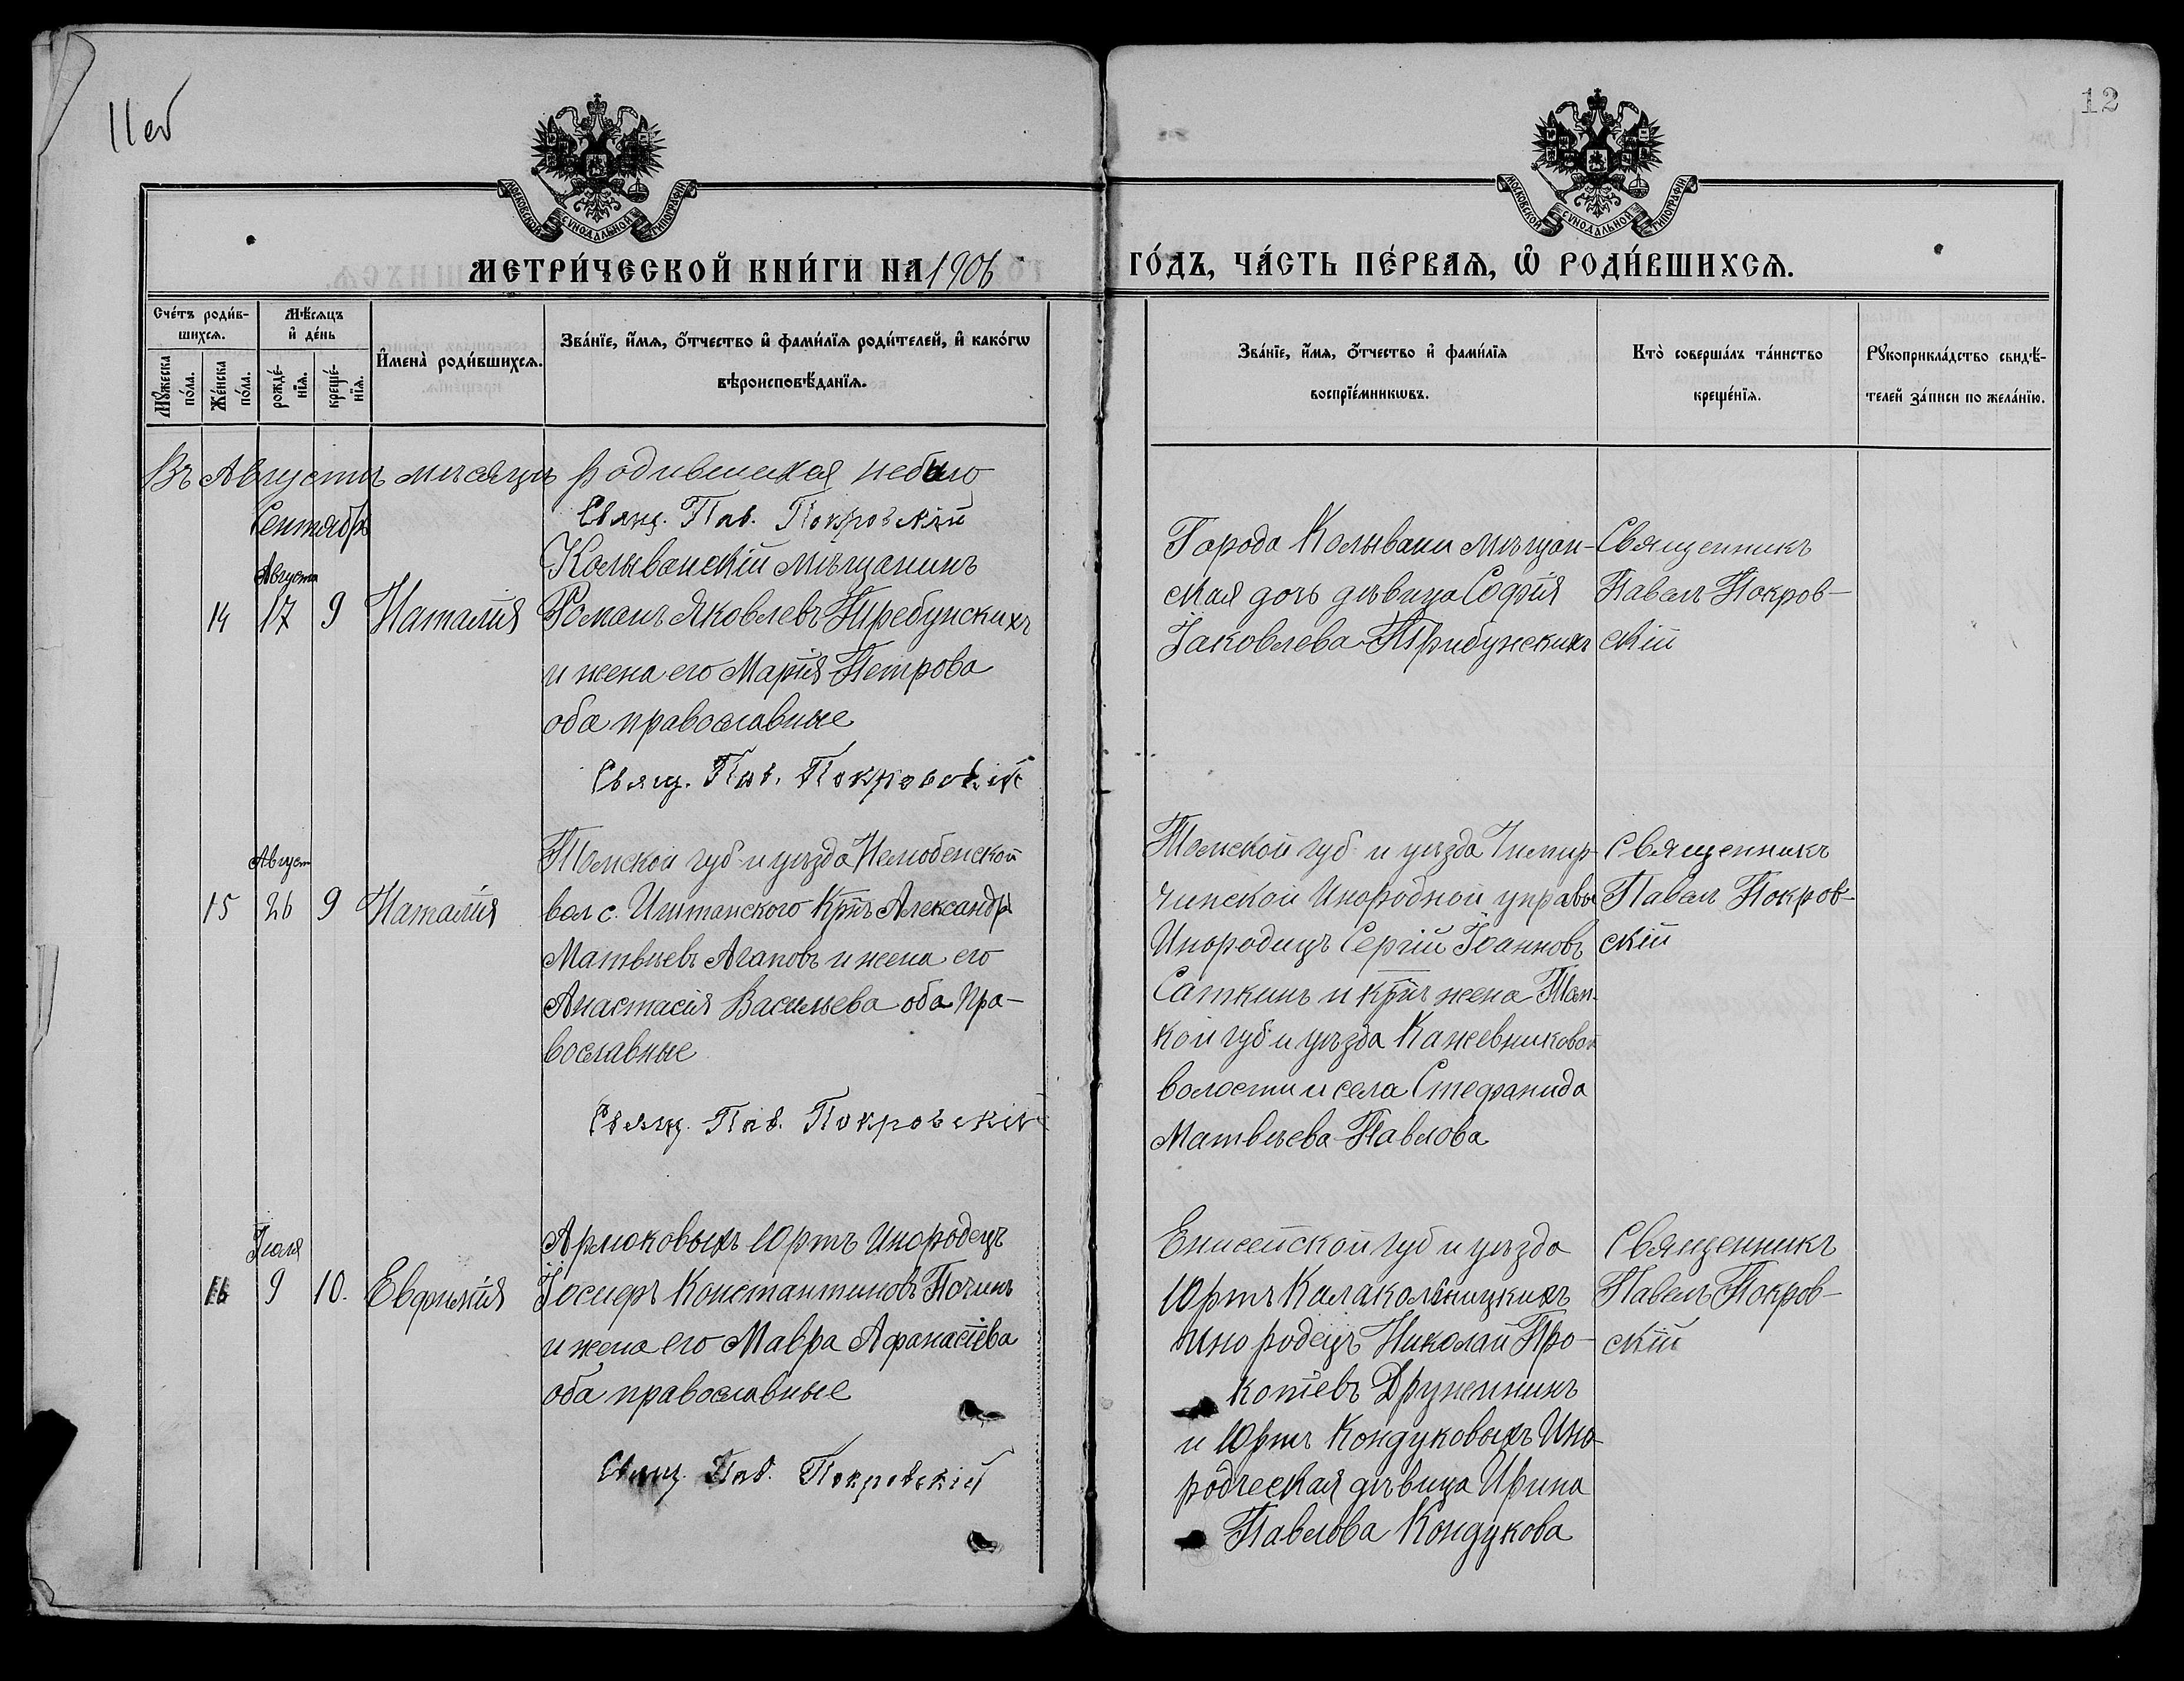 11об
12
МОСКОВСКОЙ СѴНОДАЛЬНОЙ ТИПОГРАФІИ
МОСКОВСКОЙ СѴНОДАЛЬНОЙ ТИПОГРАФІИ
МЕТРИ́ЧЕСКОЙ КНИ́ГИ НА 1906
ГО́ДЪ, ЧА́СТЬ ПЕ́РВАѦ, Ѡ РОДИ́ВШИХСѦ.
Сче́тъ роди́в-
шихсѧ.
Мꙋ́жеска по́ла.
Же́нска по́ла.
Мѣ́сѧцъ
и де́нь
рожде́-
нїѧ.
креще́-
нїѧ.
И́мена̀ роди́вшихсѧ.
Зва́нїе, и́мѧ, ѻ́тчество и фами́лїѧ роди́телей, и како́гѡ
вѣроисповѣ́данїѧ.
Зва́нїе, и́мѧ, ѻ́тчество и фами́лїѧ
воспрїе́мникѡвъ.
Кто̀ соверша́лъ та́инство
креще́нїѧ.
Рꙋкоприкла́дство свидѣ́-
телей за́писи по жела́нїю.
Въ Августѣ мѣсяцѣ родившихся небыло
Свящ. Пав. Покровскій
Сентябрь
Августа
14 17 9 Наталія
Колыванскій мѣщанинъ
Романъ Яковлевъ Требунскихъ
и жена его Марія Петрова
оба православные
Свящ. Пав. Покровскій
Города Колывани мѣщан-
ская дочь дѣвица Софія
Іаковлева Трибунскихъ
Священникъ
Павелъ Покров-
скій
Август
15 26 9 Наталія
Томской губ и уѣзда Нелюбенской
вол с. Иштанского Крнъ Александръ
Матвѣевъ Агаповъ и жена его
Анастасія Васильева оба пра-
вославные
Свящ. Пав. Покровскій
Томской губ и уѣзда
чинской Инородной управы
Инородицъ Сергій Іоанновъ
Саткинъ и крнч жена Том-
кой губ и уѣзда Кажевниковой
волости и села Стефанида
Матвѣева Павлова
Священникъ
Павелъ Покров-
скій
Іюля
16 9 10. Евфимія
Армоковыхъ Юртъ Инородецъ
Іосифъ Константиновъ Точинъ
и жена его Мавра Афанасіева
оба православные
Свящ. Пав. Покровскій
Енисейской губ и уѣзда
Юртъ Калакольницкихъ
инородецъ Николай Про-
копіевъ Дружининъ
и Юртъ Кондуковыхъ Ино-
родческая дѣвица Ирина
Павлова Кондукова
Священникъ
Павелъ Покров-
скій